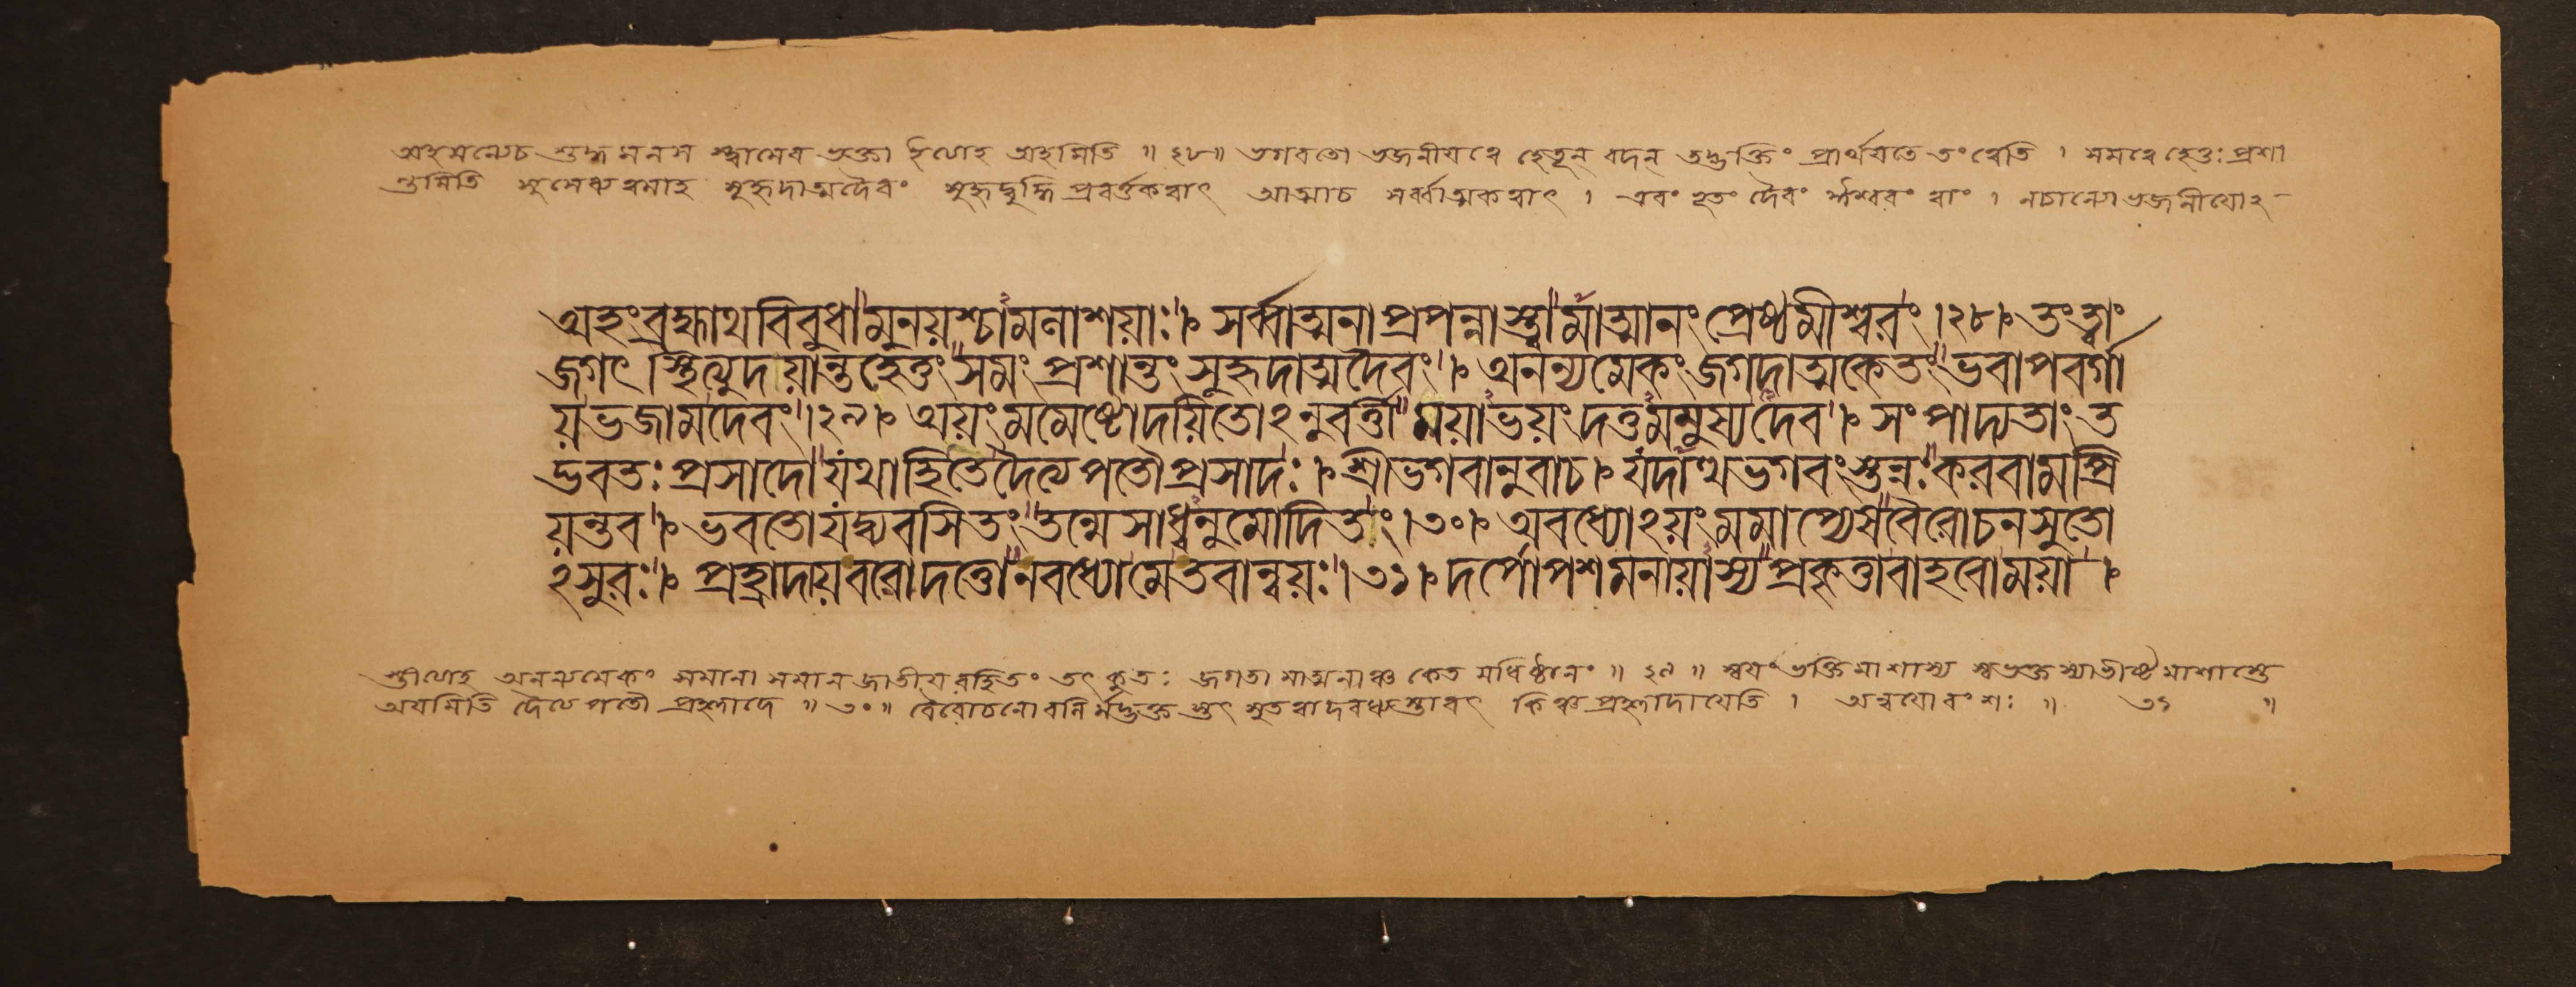 অহমন্যেচ শুদ্ধমনস স্ত্বামেব ভক্তা ইত্যাহ অহমিতি ॥ ২৮॥ ভগবতো ভজনীয়ত্বে হেতূন্ বদন্ তদ্ভক্তিং প্রার্থয়তে তংত্বেতি । সমত্বে হেতুঃ প্রশা
ন্তমিতি সুসেব্যত্বমাহ সুহৃদাত্মদৈবং সুহৃদ্বুদ্ধি প্রবর্ত্তকত্বাৎ আত্মাচ সর্ব্বাত্মকত্বাৎ । এবং ভূতং দৈবং ঈশ্বরং ত্বাং । নচান্যো ভজনীয়োঽ-
অহংব্রহ্মাথবিবুধামুনয়শ্চামনাশয়াঃ । সর্ব্বাত্মনাপ্রপন্নাস্ত্বামাত্মানংপ্রেষ্ঠমীশ্বরং ।২৮। তংত্বাং
জগৎ স্থিত্যুদয়ান্তহেতুংসমং প্রশান্তংসুহৃদাত্মদৈবং । অনন্যমেকংজগদাত্মকেতংভবাপবর্গা
য়ভজামদেবং।২৯। অয়ংমমেষ্টোদয়িতোঽনুবর্ত্তীময়াভয়ংদত্তমমুষ্যদেব । সংপাদ্যতাংত
দ্ভবতঃপ্রসাদোযথাহিতেদৈত্যপতৌপ্রসাদঃ । শ্রীভগবানুবাচ । যদাত্থভগবংস্তন্নঃকরবামপ্রি
য়ন্তব । ভবতোযদ্ব্যবসিতংতন্মেসাধ্বনুমোদিতং ।৩০। অবধ্যোঽয়ংমমাপ্যেষবৈরোচনসুতো
ঽসুরঃ । প্রহ্রাদায়বরোদত্তোনবধ্যোমেতবান্বয়ঃ ।৩১। দর্পোপশমনায়াস্যপ্রবৃক্তাবাহবোময়া ।
স্তীত্যাহ অনন্যমেকং সমানা সমানজাতীয় রহিতং তৎ কুতঃ জগতা মাত্মনাঞ্চ কেত মধিষ্ঠানং ॥ ২৯ ॥ স্বয়ং ভক্তিমাশাস্য স্বভক্তস্যাভীষ্টমাশাস্তে
অয়মিতি দৈত্যপতৌ প্রহ্লাদে ॥ ৩০॥ বৈরোচনো বলি র্মদ্ভক্ত স্তৎ সুতত্বাদবধ্যস্তাবৎ কিঞ্চ প্রহ্লাদায়েতি । অন্বয়োবংশঃ ॥ ৩১ ॥